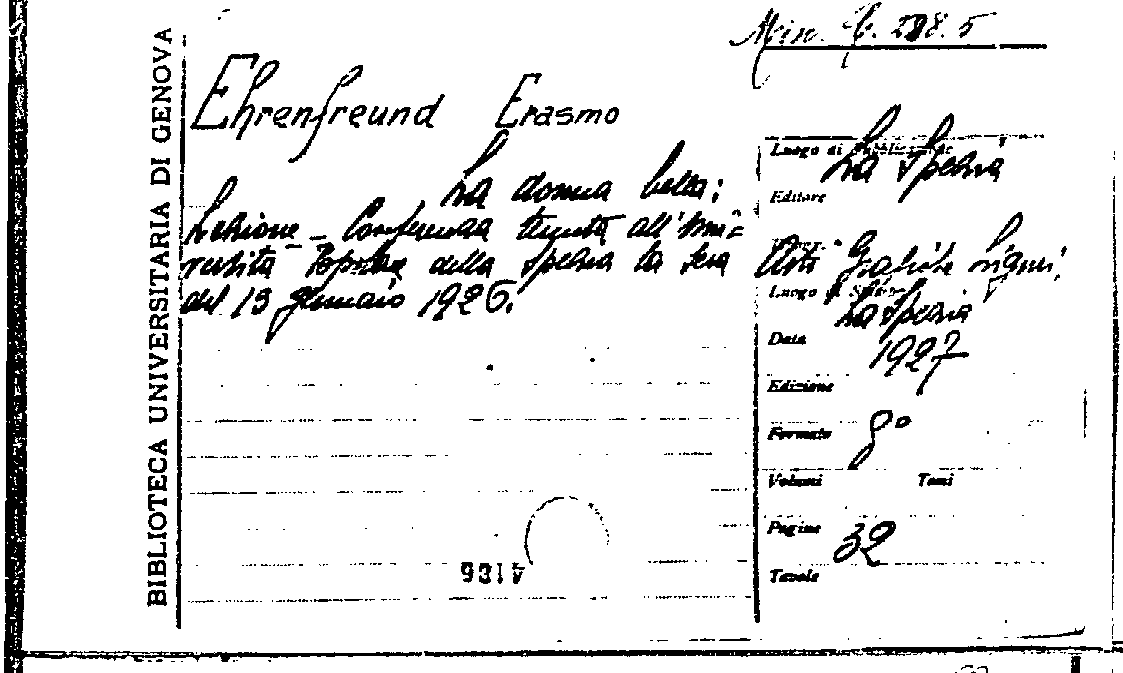 BIBLIOTECA UNIVERSITARIA DI GENOVA
Ehrenfreund Erasmo
La donna bella:
Lezione - Conferenza tenuta all'Uni=
versità Popolare della Spezia la sera
del 13 gennaio 1926.
4186
Luogo di Pubblicazione La Spezia
Editore
Arti Grafiche Liguri
Luogo di Stampa La Spezia
Data 1927
Edizione
Formato 8°
Volumi Tomi
Pagine 32
Tavole